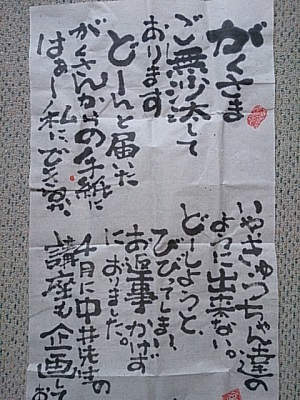 がくさま
ご無沙汰して
おります
どーんと届いた
がくさんからの手紙に
はぁ〜私に、できるか、
いやきゅうちゃん達の
ように出来ない。
どーしようと、
びびってしまい、
お返事かけず
におりました。
4日に中井先生の
講座も企画して
お